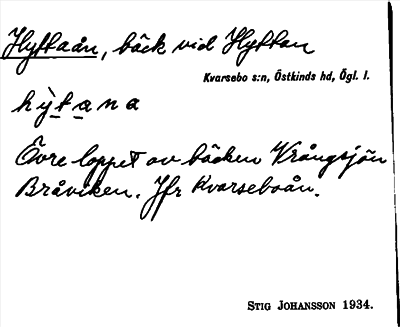 Hyttaån, bäck vid Hyttan
Kvarsebo s:n, Östkinds hd, Ögl. l.
hỳtana
Övre loppet av bäcken Vrångsjön
Bråviken. Jfr Kvarseboån.
Stig Johansson 1934.